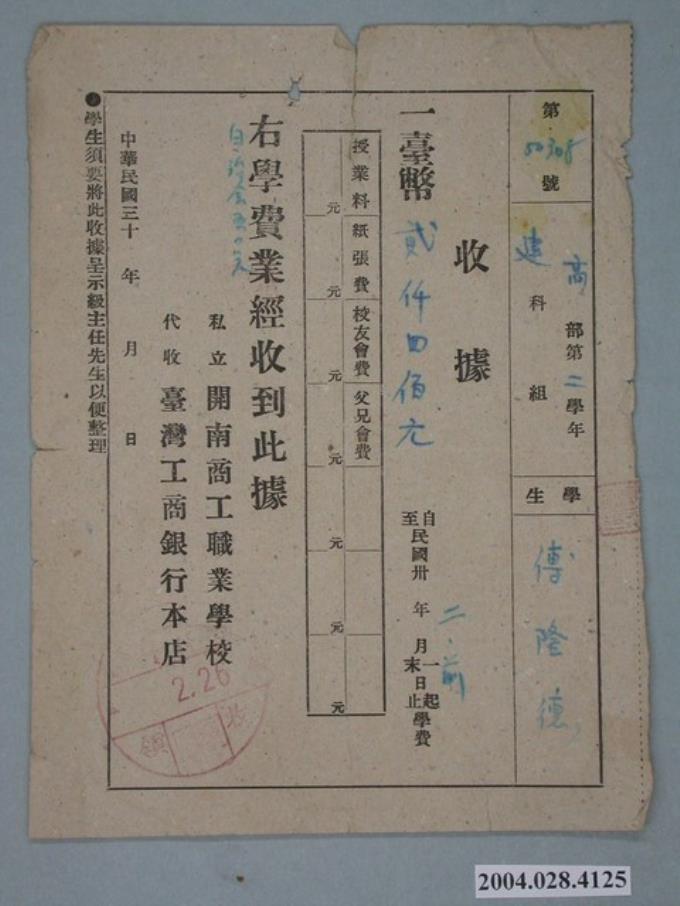 第50305號
高部第二學年
建科組
學生
傅隆德
收據
一臺幣貳仟四佰元
自至民國卅年月一日起末日止學費
二、前
授業料 元
紙張費 元
校友會費 元
父兄會費 元
元
元
元
右學費業經收到此據
私立開南商工職業學校
代收臺灣工商銀行本店
中華民國三十年月日
●學生須要將此收據呈示級主任先生以便整理
2.26
收
領
2004.028.4125